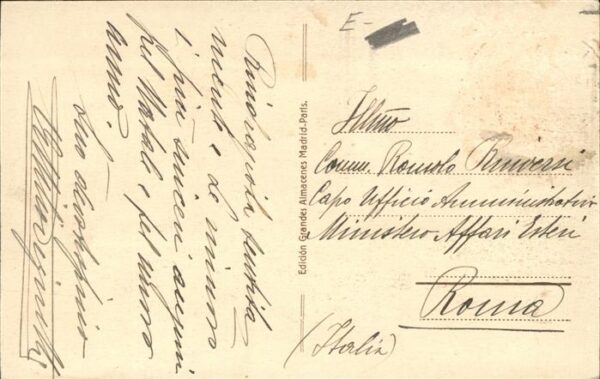 Ringraziola sentita
mente e Le invio
i più sinceri auguri
pel Natale e pel nuovo
anno.
Suo devotissimo
Edición Grandes Almacenes Madrid-París.
E-
Illmo
Comm. Romolo
Capo Ufficio Amministrativo
Ministero Affari Esteri
Roma
(Italia)